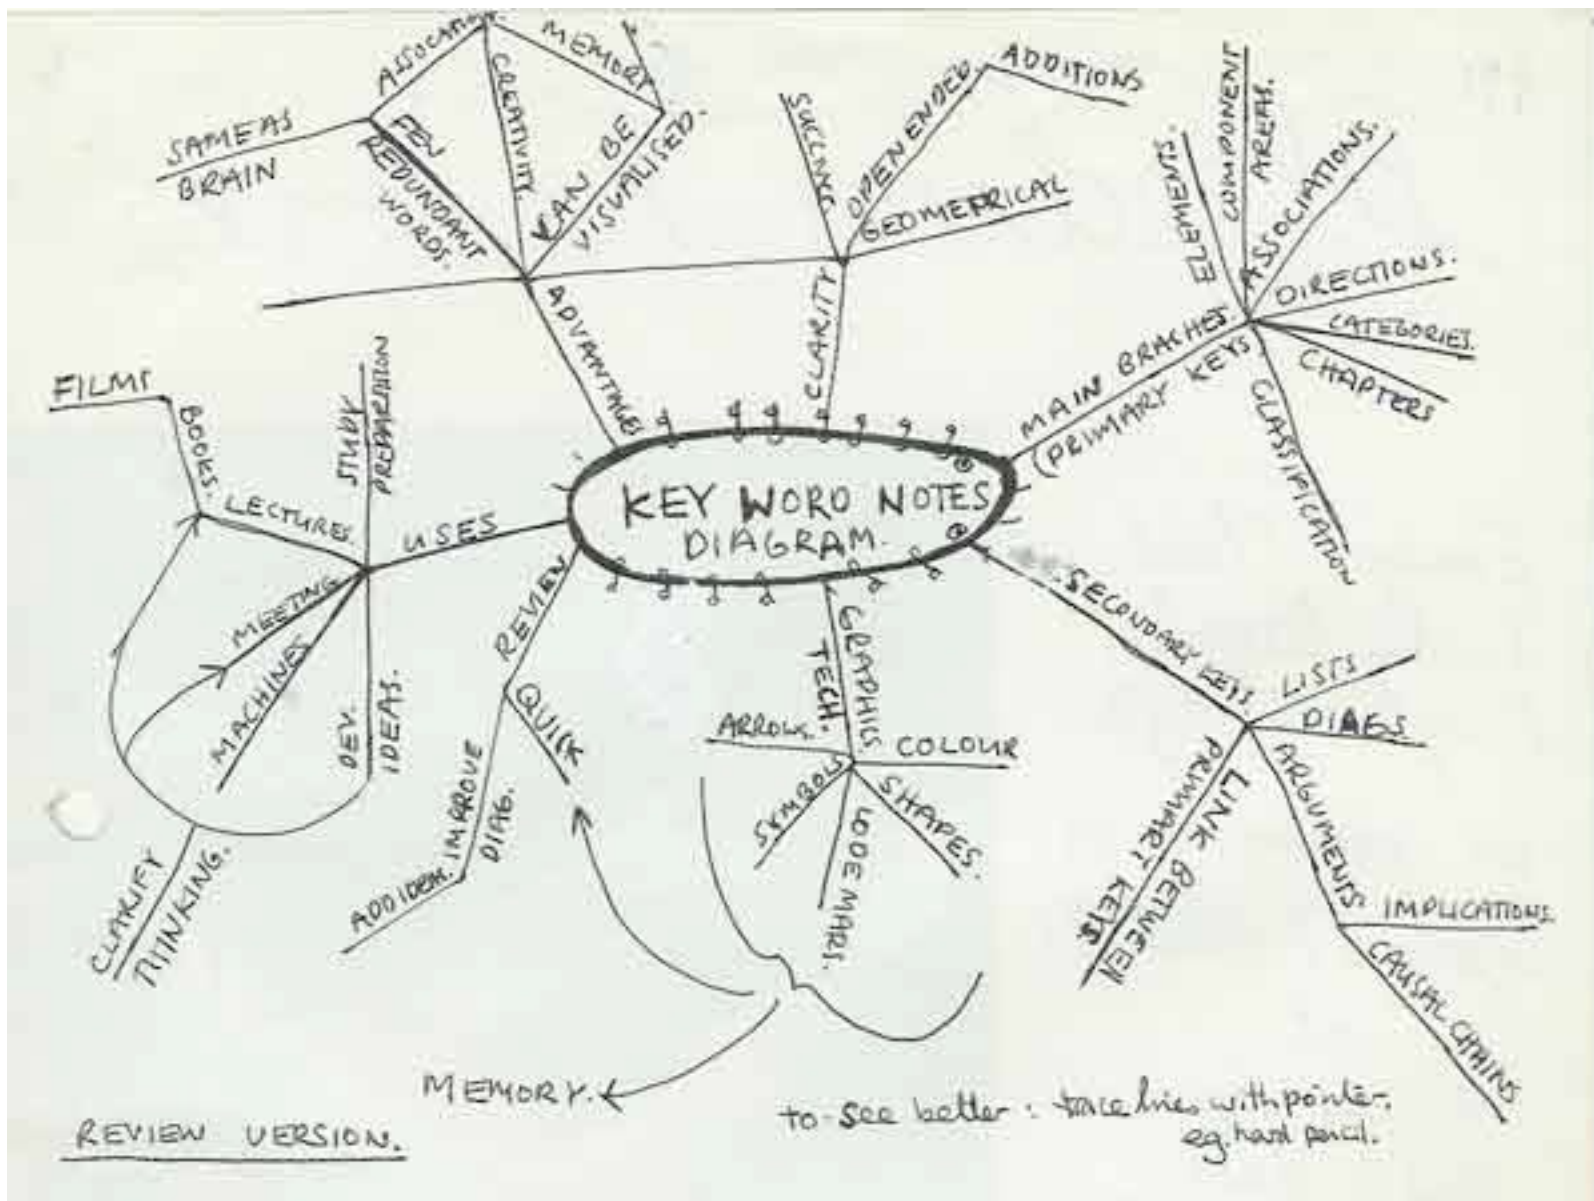 KEY WORD NOTES
DIAGRAM.
ADVANTAGES
SAME AS
BRAIN
FEW
REDUNDANT
WORDS.
CREATIVITY.
MEMORY
CAN BE
VISUALISED.
CLARITY
OPENENDED.
ADDITIONS
GEOMETRICAL
MAIN BRACHES.
(PRIMARY KEYS)
ELEMENTS.
COMPONENT
AREAS.
ASSOCIATIONS.
DIRECTIONS.
CATEGORIES.
CHAPTERS
CLASSIFICATION
SECONDARY KEYS.
LISTS
DIAGS
ARGUMENTS.
IMPLICATIONS.
CAUSAL CHAINS
LINK BETWEEN
PRIMARY KEYS.
GRAPHICS
TECH.
ARROWS.
COLOUR
SYMBOLS
SHAPES.
CODE MARS.
REVIEW
QUICK
IMPROVE
DIAG.
ADD IDEAS.
USES
STUDY
PREPARATION
LECTURES.
BOOKS.
FILMS
MEETING
MACHINES
DEV.
IDEAS.
CLARIFY
THINKING.
MEMORY.
to see better : trace lines with pointer.
eg. hard pencil.
REVIEW VERSION.